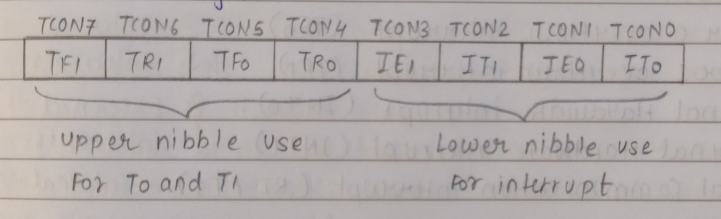 TCON7 TCON6 TCON5 TCON4 TCON3 TCON2 TCON1 TCON0
TF1 TR1 TF0 TR0 IE1 IT1 IE0 IT0
Upper nibble use Lower nibble use
For T0 and T1 For interrupt